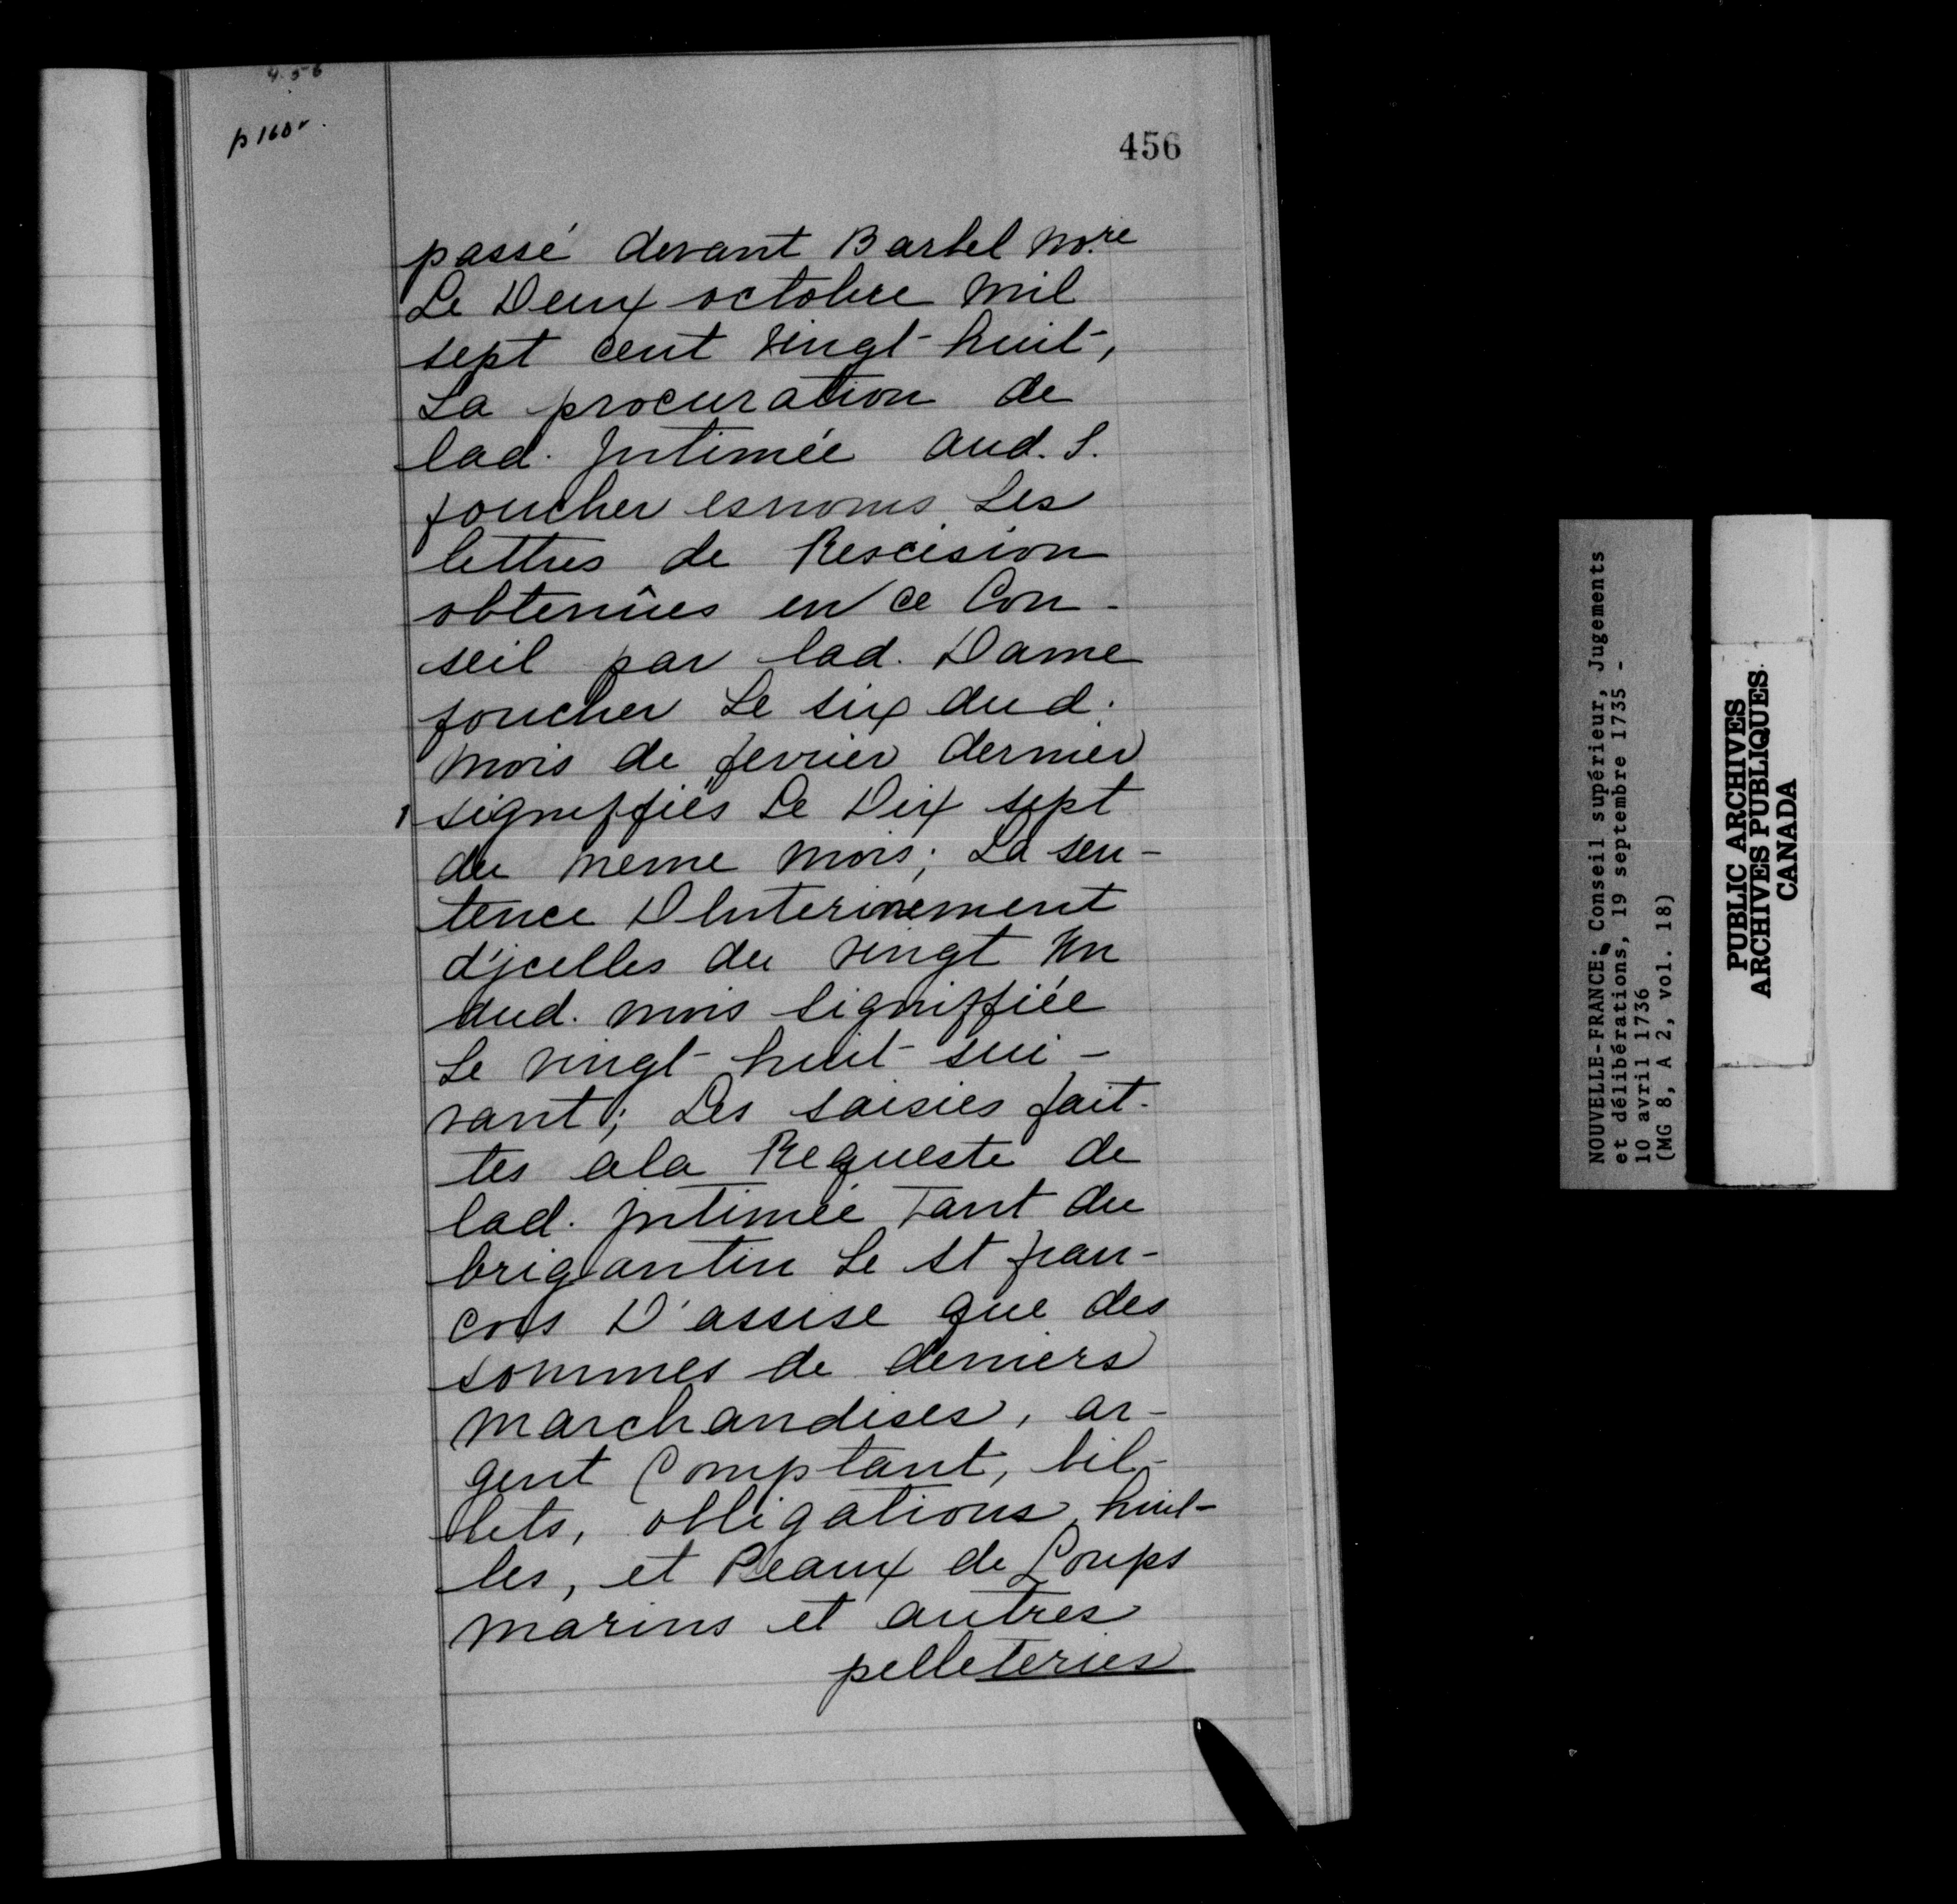 456
p 160v.
456
passé devant Barbel no.re
Le Deux octobre mil
sept cent vingt-huit,
La procuration de
lad. Jntimée aud. S.
foucher esnoms Les
lettres de Rescision
obtenües en ce Con-
seil par lad. Dame
foucher Le six dud.
mois de fevrier dernier
signiffiés Le Dix sept
du meme mois; La sen-
tence D'Interinement
d'jcelles du vingt Un
dud. mois signiffiée
Le vingt-huit sui-
vant; Les saisies fait-
tes ala Requeste de
lad. jntimée Tant du
brigantin Le St fran-
cois D'assise que des
sommes de deniers
marchandises, ar-
gent Comptant, bil-
lets, obligations, huil-
les, et Peaux de Loups
marins et autres
pelleteries
NOUVELLE-FRANCE: Conseil supérieur, Jugements
et délibérations, 19 septembre 1735 -
10 avril 1736
(MG 8, A 2, vol. 18)
PUBLIC ARCHIVES
ARCHIVES PUBLIQUES
CANADA